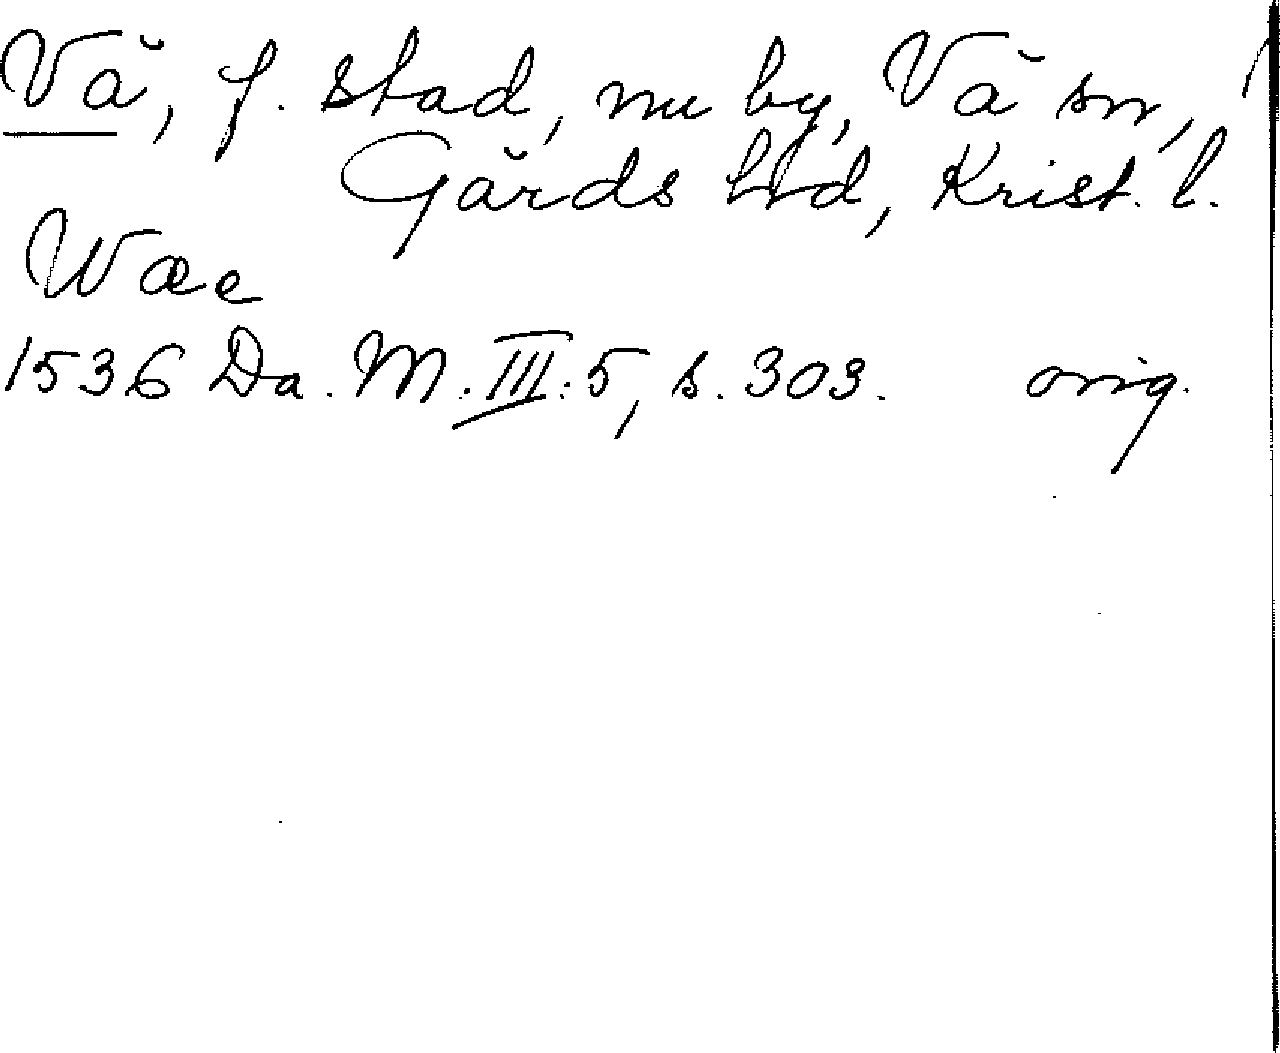 Vå, f. stad, nu by, Vå sn,
Gärds hd, Krist. l.
Wæe
1536 Da. M. III: 5, s. 303. orig.